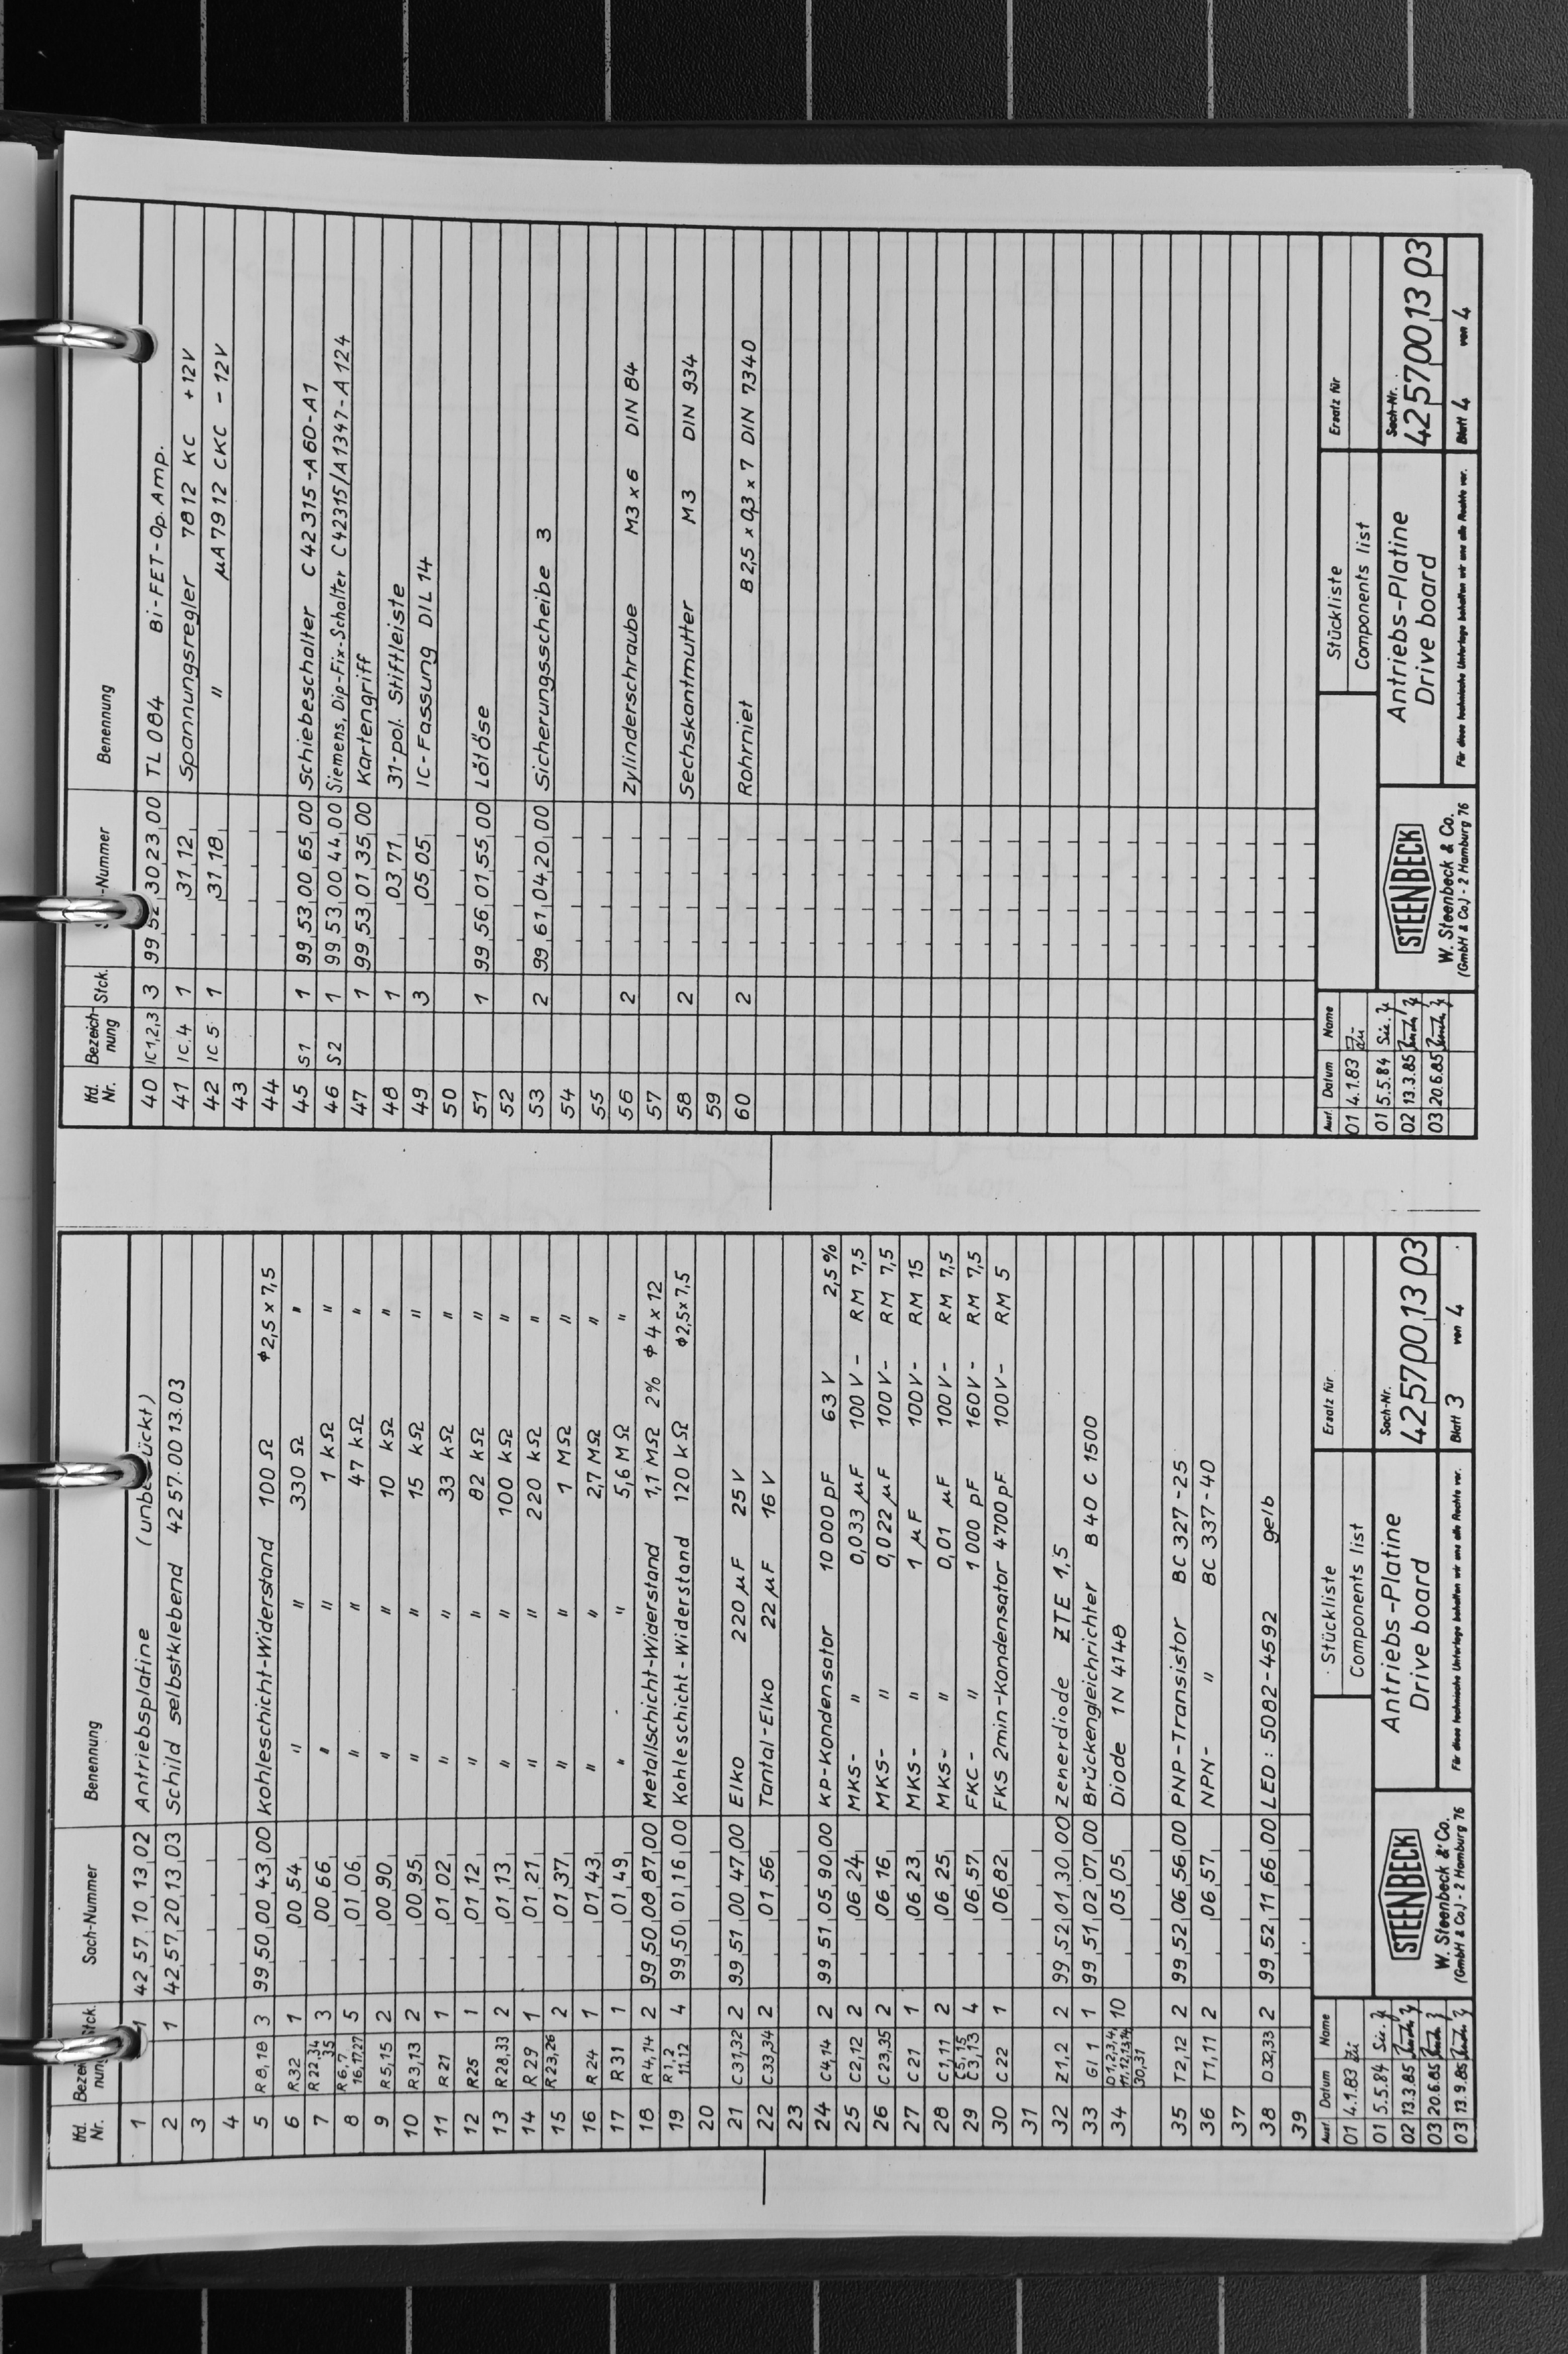 lfd. Nr. Bezeichnung Stck. Sach-Nummer Benennung
1 1 42 57 10 13 02 Antriebsplatine
2 1 42,57,20,13,03 Schild selbstklebend 42 57.00 13.03
3
4
5 R 8,18 3 99,50,00,43,00 Kohleschicht-Widerstand 100 Ω ϕ 2,5 x 7,5
6 R32 1 00 54 " " 330 Ω "
7 R 22,34 35 3 00 66 " " 1 kΩ "
8 R 6,7 16,17,27 5 01 06 " " 47 kΩ "
9 R 5,15 2 00 90 " " 10 kΩ "
10 R3,13 2 00,95 " " 15 kΩ "
11 R 21 1 01 02 " " 33 kΩ "
12 R25 1 01 12 " " 82 kΩ "
13 R 28,33 2 01 13 " " 100 kΩ "
14 R 29 1 01 21 " " 220 kΩ "
15 R 23,26 2 01,37 " " 1 MΩ "
16 R 24 1 01 43 " " 2,7 MΩ "
17 R 31 1 01 49 " " 5,6 MΩ "
18 R4,14 2 99 50 08 87,00 Metallschicht-Widerstand 1,1 MΩ 2% ϕ 4 x 12
19 R 1,2 11,12 4 99,50 01 16 00 Kohleschicht-Widerstand 120 kΩ ϕ2,5x 7,5
20
21 C 31,32 2 99,51 00 47,00 Elko 220 µF 25 V
22 C33,34 2 01 56 Tantal-Elko 22 µF 16 V
23
24 C4,14 2 99 51 05 90,00 KP-Kondensator 10 000 pF 63 V 2,5 %
25 C2,12 2 06 24 MKS- " 0,033 µF 100 V- RM 7,5
26 C 23,35 2 06 16 MKS- " 0,022 µF 100 V- RM 7,5
27 C 21 1 06 23 MKS- " 1 µF 100 V- RM 15
28 C 1,11 2 06 25 MKS- " 0,01 µF 100 V- RM 7,5
29 C 5, 15 C 3,13 4 06,57 FKC- " 1 000 pF 160 V- RM 7,5
30 C 22 1 06,82 FKS 2min-Kondensator 4700 pF 100V- RM 5
31
32 Z1,2 2 99,52 01 30,00 Zenerdiode ZTE 1,5
33 Gl 1 1 99,51 02,07,00 Brückengleichrichter B 40 C 1500
34 D 1,2,3,4, 11,12,13,14 30,31 10 05 05 Diode 1N 4148
35 T2,12 2 99,52 06,56,00 PNP-Transistor BC 327-25
36 T1,11 2 06,57 NPN- " BC 337-40
37
38 D 32,33 2 99 52 11 66 00 LED: 5082-4592 gelb
39
Ausf. Datum Name
01 4.1.83
01 5.5.84
02 13.3.85
03 20.6.85
03 13.9.85
STEENBECK
W. Steenbeck & Co.
(GmbH & Co.) · 2 Hamburg 76
Stückliste
Components list
Ersatz für
Antriebs-Platine
Drive board
Sach-Nr.
42 57 00 13 03
Für diese technische Unterlage behalten wir uns alle Rechte vor.
Blatt 3 von 4
lfd. Nr. Bezeichnung Stck. -Nummer Benennung
40 IC 1,2,3 3 99 52,30 23 00 TL 084 Bi-FET-Op. Amp.
41 IC 4 1 31 12 Spannungsregler 7812 KC +12V
42 IC 5 1 31 18 " µA 79 12 CKC - 12V
43
44
45 S1 1 99,53,00 65,00 Schiebeschalter C 42 315 -A 60-A1
46 S2 1 99 53,00 44,00 Siemens, Dip-Fix-Schalter C 42315/A1347-A 124
47 1 99,53,01,35,00 Kartengriff
48 1 03 71 31-pol. Stiftleiste
49 3 05 05 IC-Fassung DIL 14
50
51 1 99 56 01,55,00 Lötöse
52
53 2 99,61,04,20,00 Sicherungsscheibe 3
54
55
56 2 Zylinderschraube M3 x 6 DIN 84
57
58 2 Sechskantmutter M3 DIN 934
59
60 2 Rohrniet B 2,5 x 0,3 x 7 DIN 7340
Ausf. Datum Name
01 4.1.83
01 5.5.84
02 13.3.85
03 20.6.85
STEENBECK
W. Steenbeck & Co.
(GmbH & Co.) · 2 Hamburg 76
Stückliste
Components list
Ersatz für
Antriebs-Platine
Drive board
Sach-Nr.
42 57 00 13 03
Für diese technische Unterlage behalten wir uns alle Rechte vor.
Blatt 4 von 4